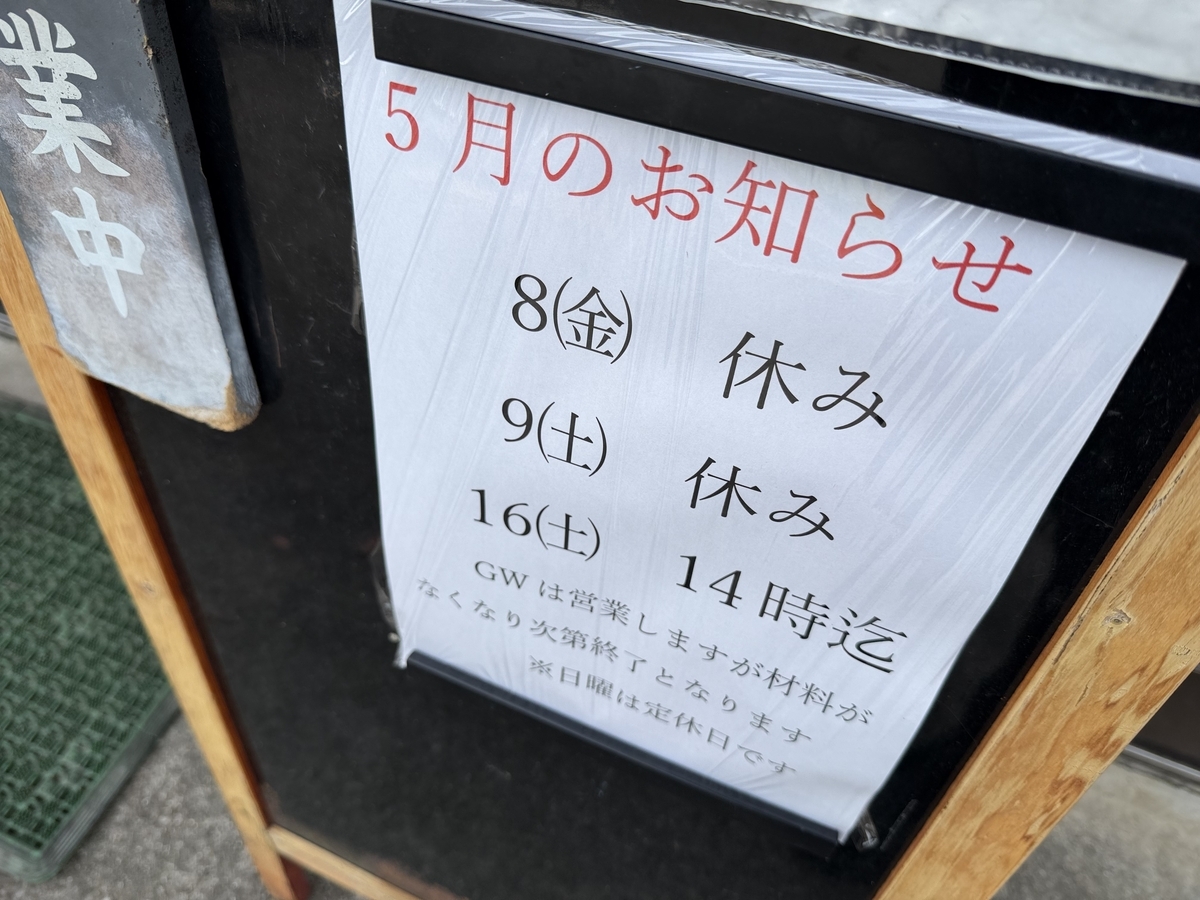 業中
5月のお知らせ
8(金) 休み
9(土) 休み
16(土) 14時迄
GWは営業しますが材料が
なくなり次第終了となります
※日曜は定休日です